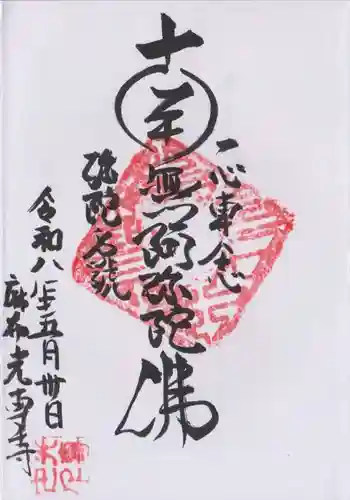 一心専念
南無阿弥陀佛
弥陀名號
令和八年五月卅日
麻布光専寺